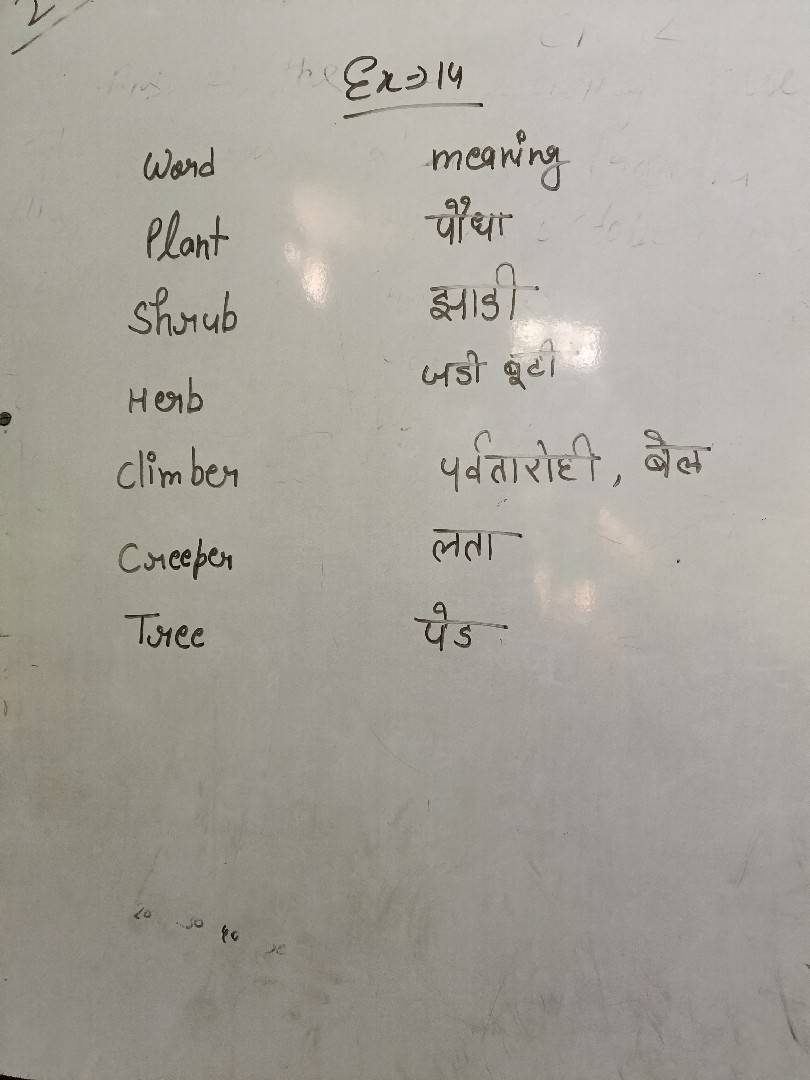 Ex⇒14
Word meaning
Plant पौधा
Shrub झाडी
Herb जडी बूटी
Climber पर्वतारोही, बेल
Creeper लता
Tree पेड